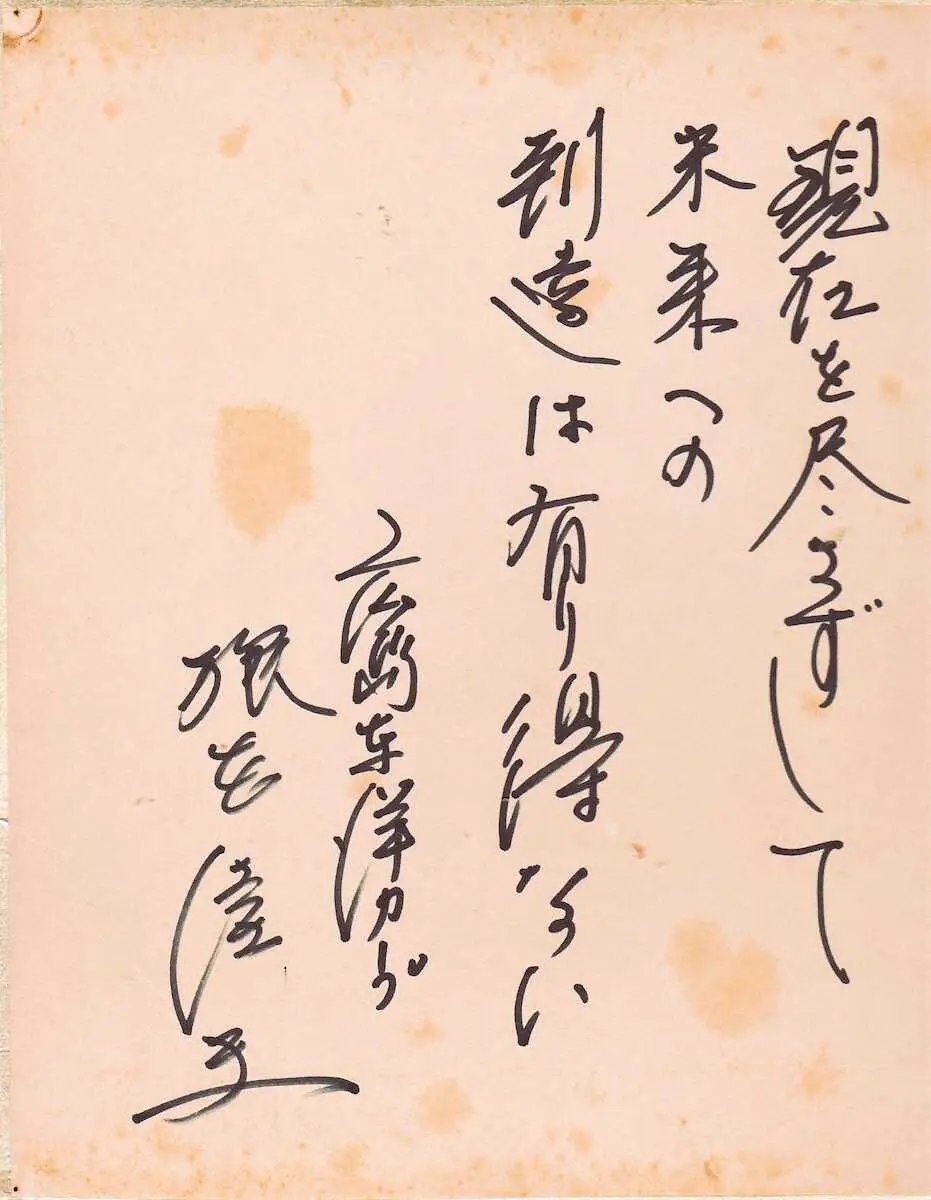 現在を尽さずして
未来への
到達は有り得ない
広島東洋カープ
根本陸夫